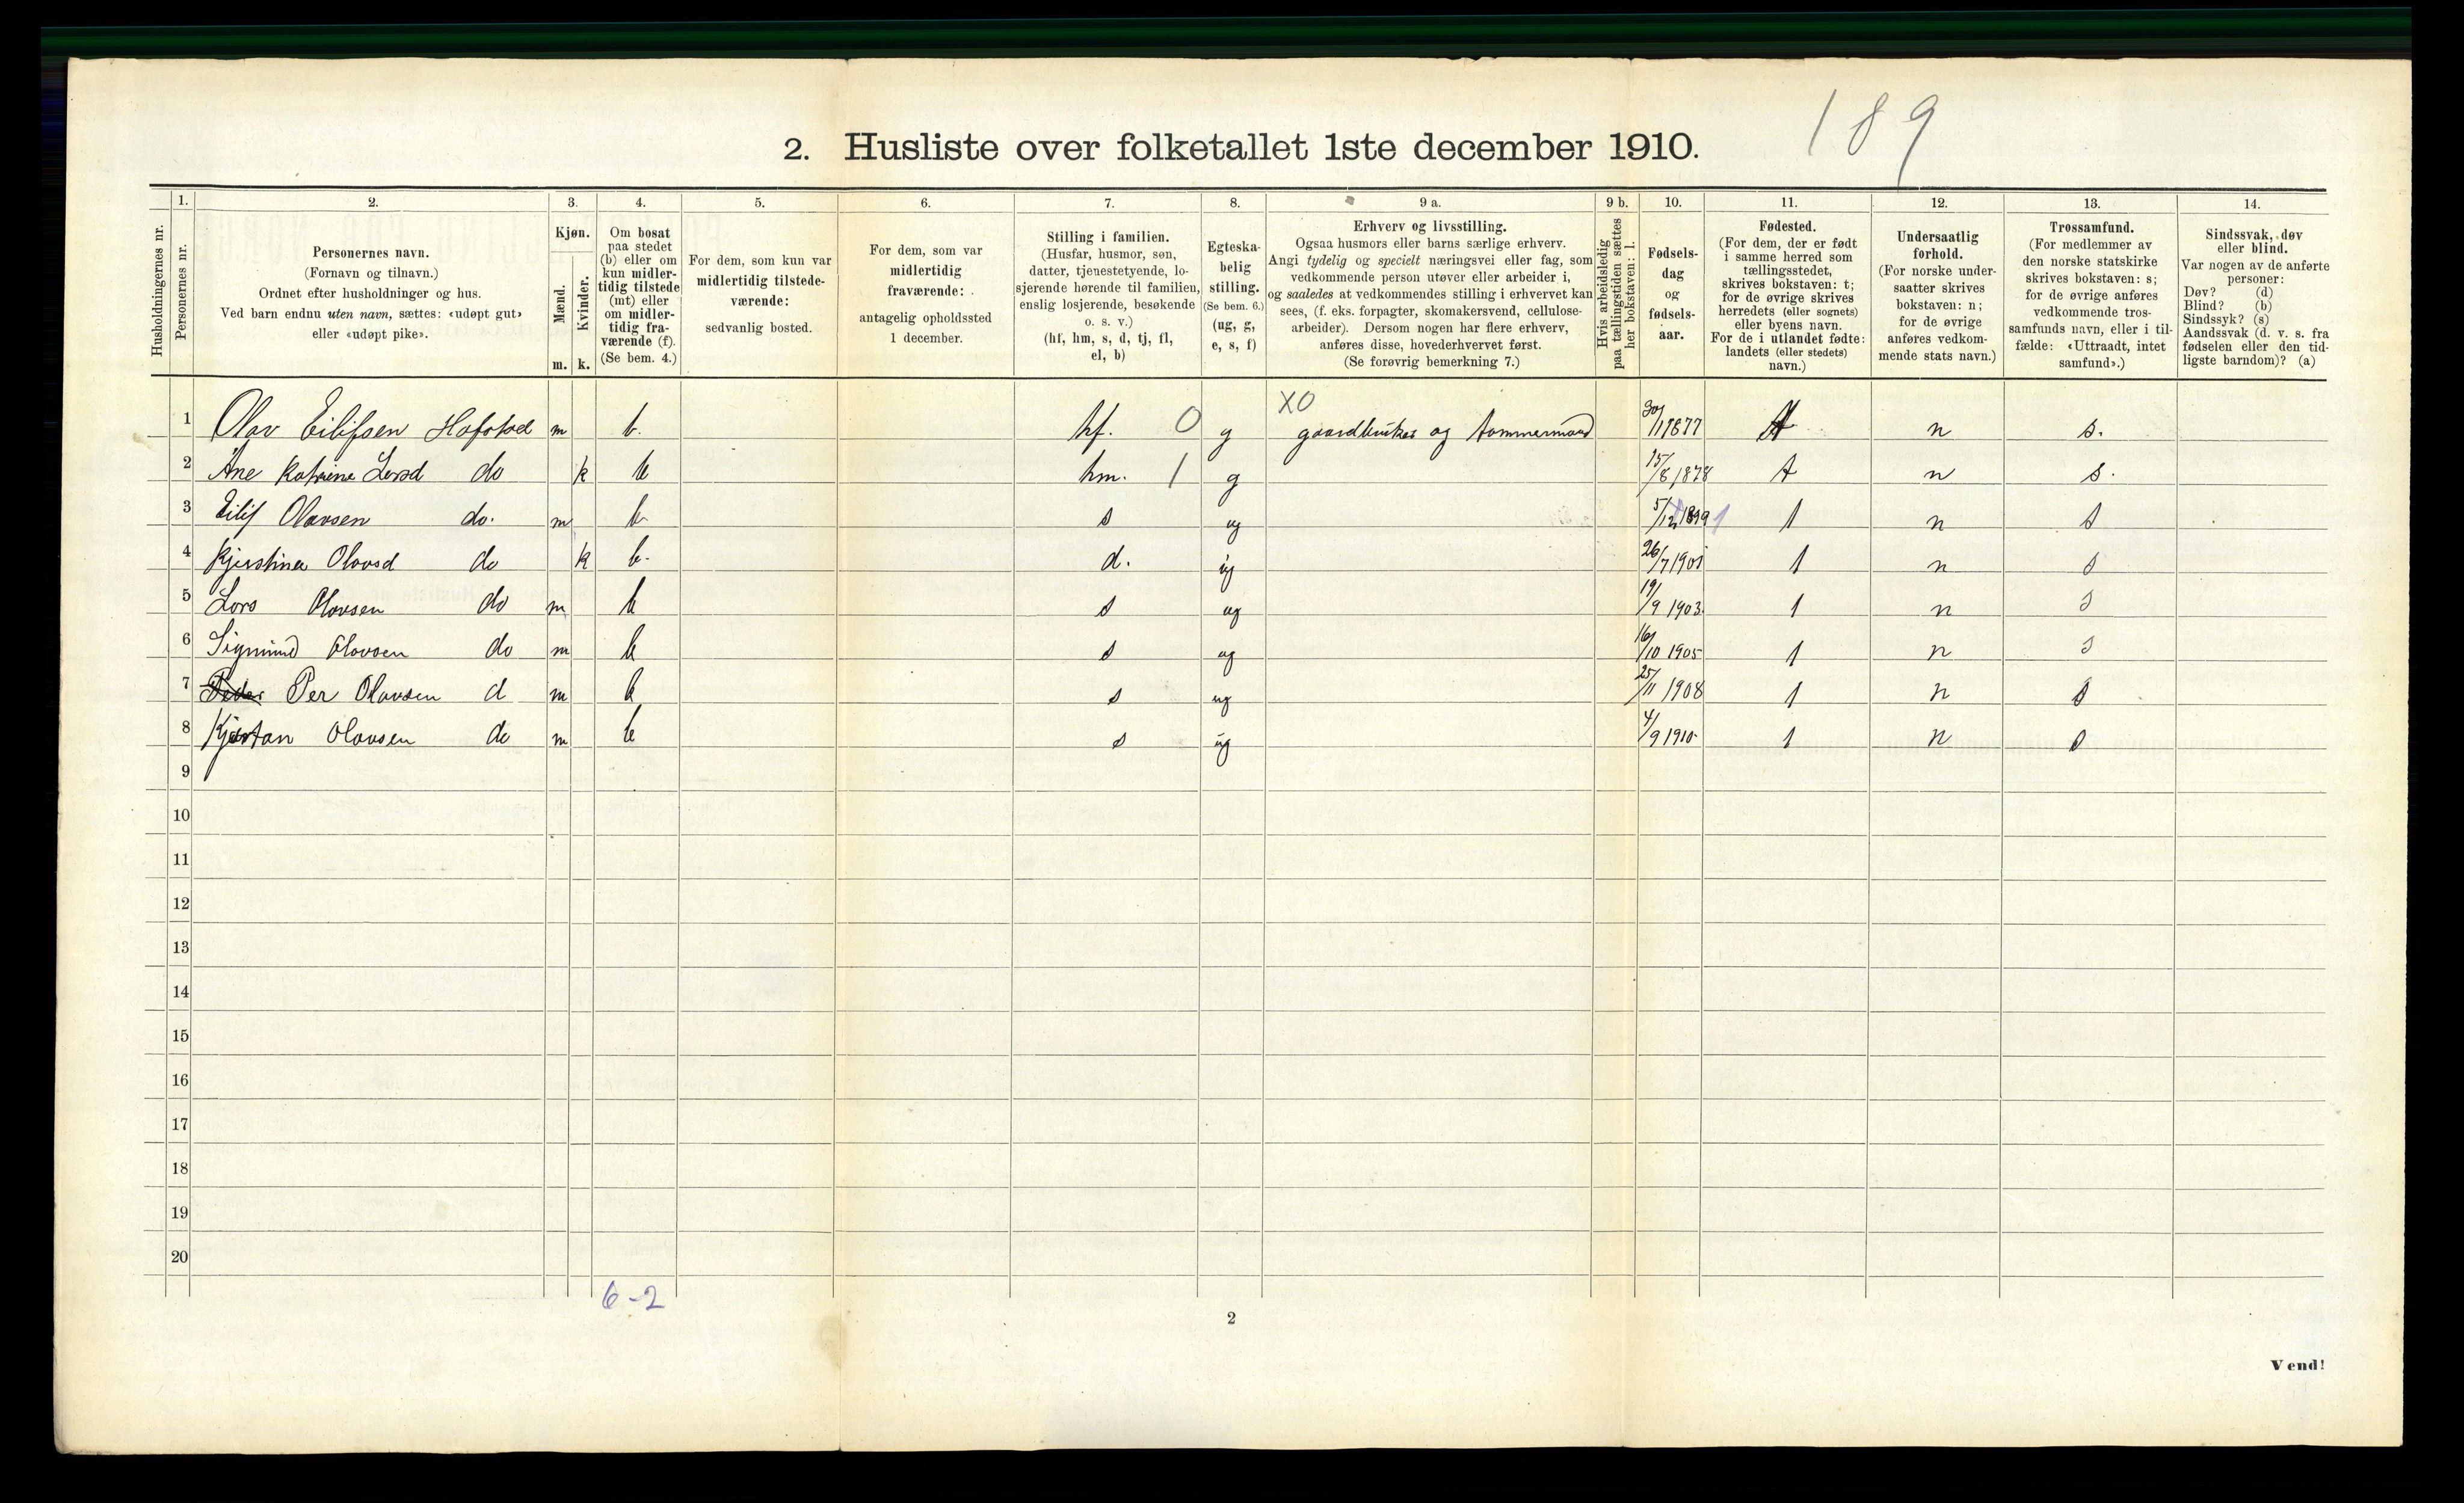 189
2. Husliste over folketallet 1ste december 1910.
Husholdningernes nr.
1.
Personernes nr.
2.
Personernes navn.
(Fornavn og tilnavn.)
Ordnet efter husholdninger og hus.
Ved barn endnu uten navn, sættes: «udøpt gut»
eller «udøpt pike».
3.
Kjøn.
Mænd.
Kvinder.
m. k.
4.
Om bosat
paa stedet
(b) eller om
kun midler-
tidig tilstede
(mt) eller
om midler-
tidig fra-
værende (f).
(Se bem. 4.)
5.
For dem, som kun var
midlertidig tilstede-
værende:
sedvanlig bosted.
6.
For dem, som var
midlertidig
fraværende:
antagelig opholdssted
1 december.
7.
Stilling i familien.
(Husfar, husmor, søn,
datter, tjenestetyende, lo-
sjerende hørende til familien,
enslig losjerende, besøkende
o. s. v.)
(hf, hm, s, d, tj, fl,
el, b)
8.
Egteska-
belig
stilling.
(Se bem. 6.)
(ug, g,
e, s, f)
9 a.
Erhverv og livsstilling.
Ogsaa husmors eller barns særlige erhverv.
Angi tydelig og specielt næringsvei eller fag, som
vedkommende person utøver eller arbeider i,
og saaledes at vedkommendes stilling i erhvervet kan
sees, (f. eks. forpagter, skomakersvend, cellulose-
arbeider). Dersom nogen har flere erhverv,
anføres disse, hovederhvervet først.
(Se forøvrig bemerkning 7.)
9 b.
Hvis arbeidsledig
paa tællingstiden sættes
her bokstaven: l.
10.
Fødsels-
dag
og
fødsels-
aar.
11.
Fødested.
(For dem, der er født
i samme herred som
tællingsstedet,
skrives bokstaven: t;
for de øvrige skrives
herredets (eller sognets)
eller byens navn.
For de i utlandet fødte:
landets (eller stedets)
navn.)
12.
Undersaatlig
forhold.
(For norske under-
saatter skrives
bokstaven: n;
for de øvrige
anføres vedkom-
mende stats navn.)
13.
Trossamfund.
(For medlemmer av
den norske statskirke
skrives bokstaven: s;
for de øvrige anføres
vedkommende tros-
samfunds navn, eller i til-
fælde: «Uttraadt, intet
samfund».)
14.
Sindssvak, døv
eller blind.
Var nogen av de anførte
personer:
Døv? (d)
Blind? (b)
Sindssyk? (s)
Aandssvak (d. v. s. fra
fødselen eller den tid-
ligste barndom)? (a)
XO
1 Olav Eilifsen Hofstad m b. hf. 0 g gaardbruker og tømmermand 30/1 1877 t n s.
2 Ane Katrine Larsd do k b hm. 1 g 15/8 1878 t n s.
3 Eilif Olavsen do. m b s ug 5/12 1899 1 t n s
4 Kjerstina Olavsd do k b. d. ug 26/7 1901 t n s
5 Lars Olavsen do m b s ug 19/9 1903. t n s
6 Sigmund Olavsen do m b s ug 16/10 1905 t n s
7 Peder Per Olavsen d m b s ug 25/11 1908 t n s
8 Kjartan Olavsen do m b s ug 4/9 1910 t n s
9
10
11
12
13
14
15
16
17
18
19
20
6-2
2
Vend!